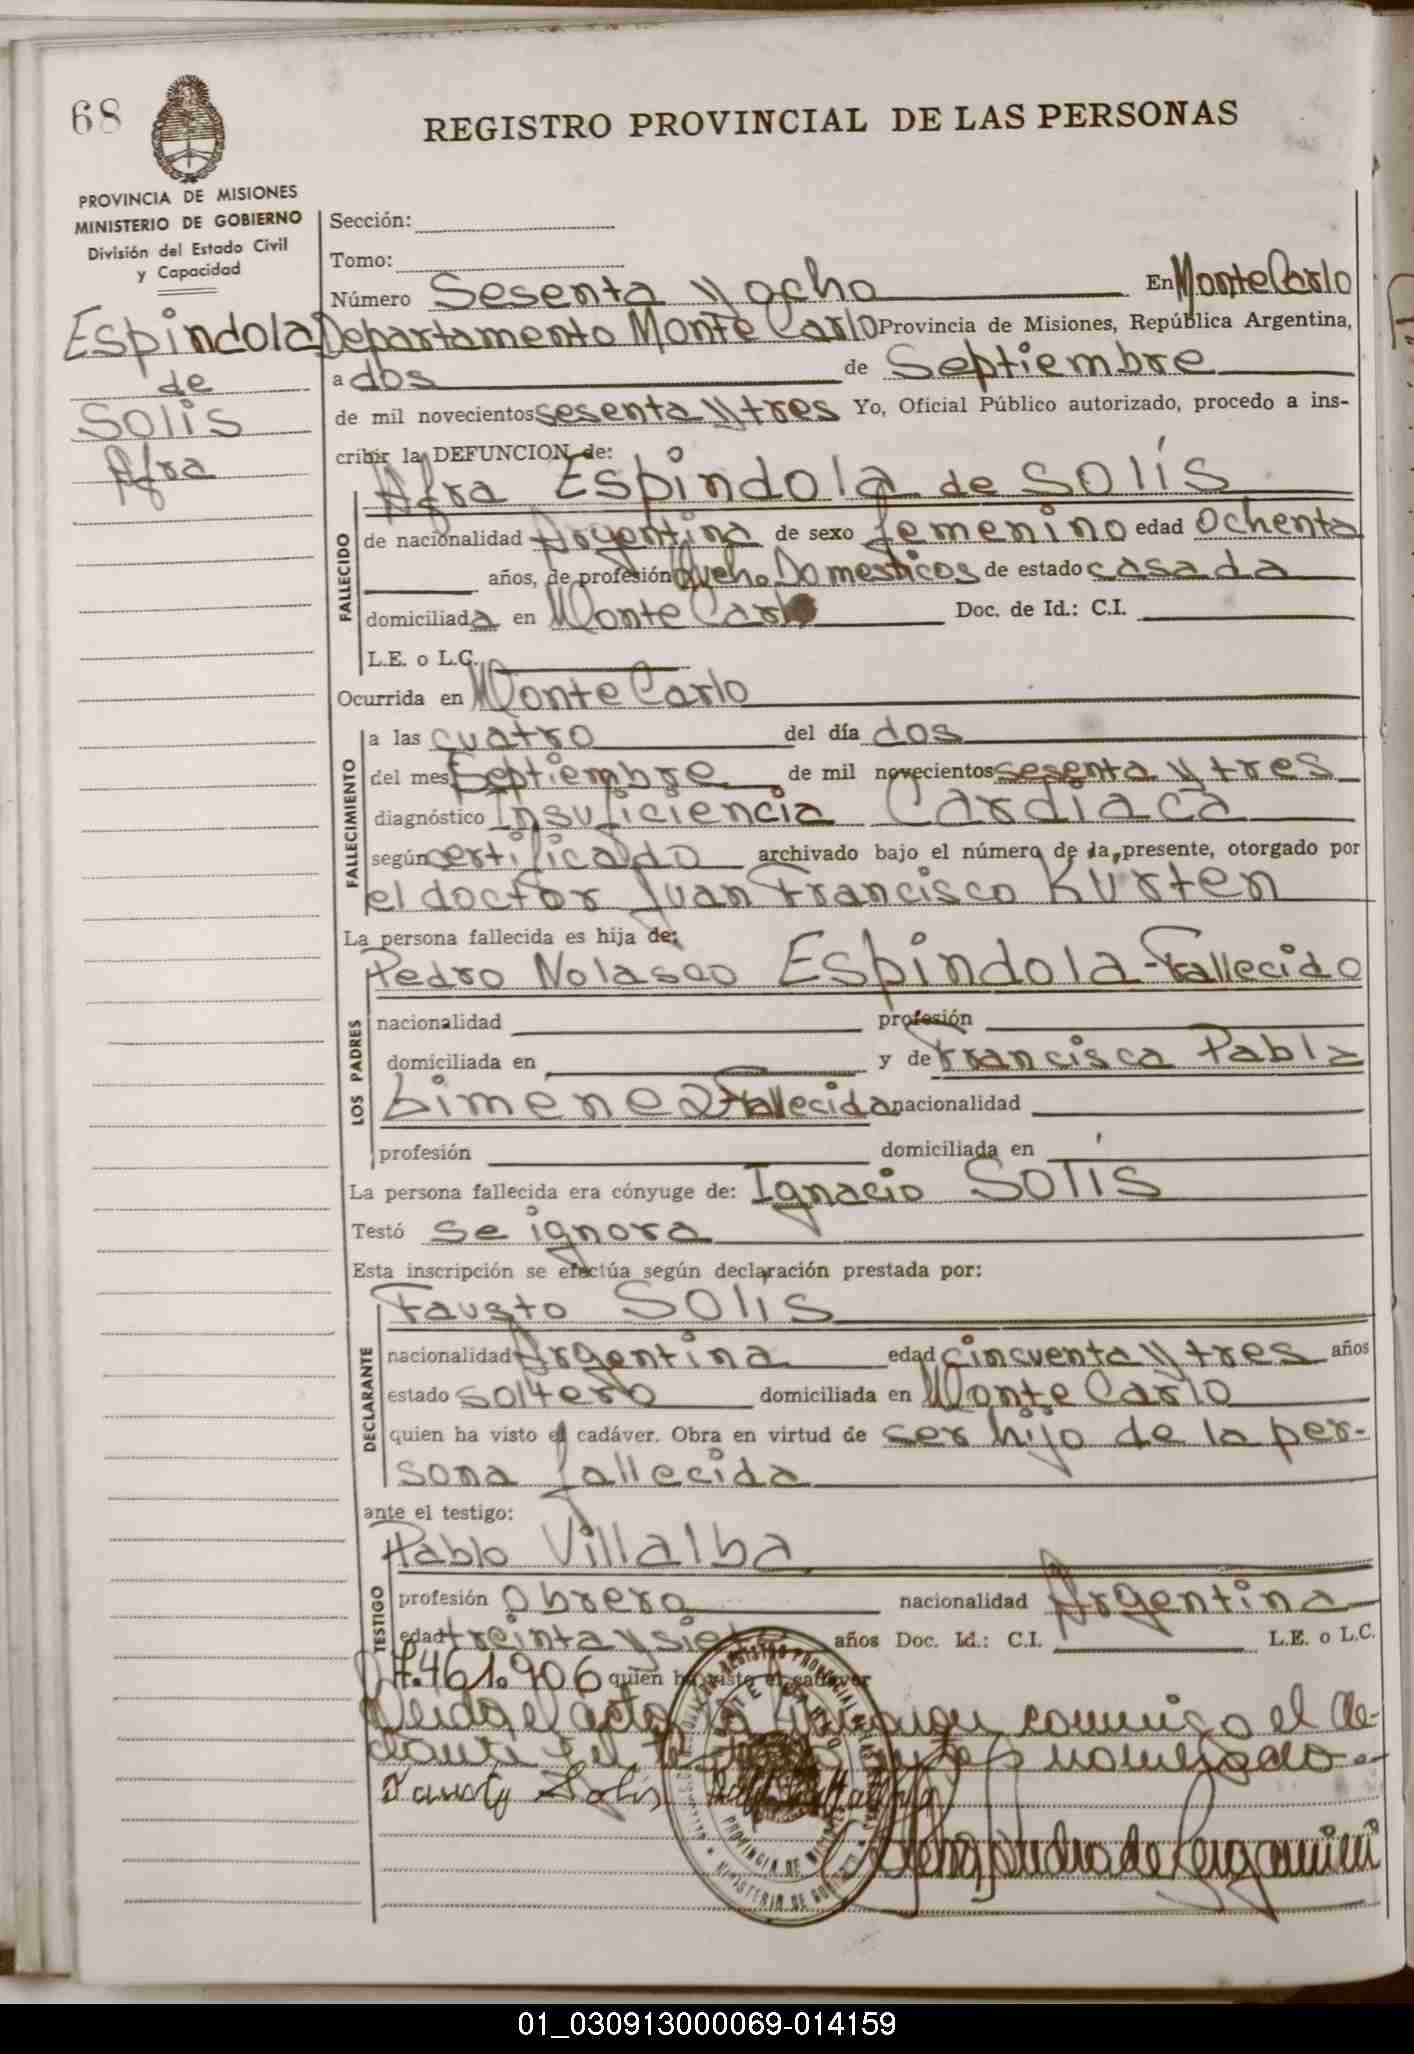 68
REGISTRO PROVINCIAL DE LAS PERSONAS
PROVINCIA DE MISIONES
MINISTERIO DE GOBIERNO
División del Estado Civil
y Capacidad
Espindola
de
Solis
Afra
Sección:
Tomo:
Número Sesenta y ocho En Monte Carlo
Departamento Monte Carlo Provincia de Misiones, República Argentina,
a dos de Septiembre
de mil novecientos sesenta y tres Yo, Oficial Público autorizado, procedo a ins-
cribir la DEFUNCION de:
Afra Espindola de Solís
FALLECIDO
de nacionalidad Argentina de sexo femenino edad ochenta
años, de profesión Queha. Domesticos de estado casada
domiciliada en Monte Carlo Doc. de Id.: C.I.
L.E. o L.C.
Ocurrida en Monte Carlo
FALLECIMIENTO
a las cuatro del día dos
del mes Septiembre de mil novecientos sesenta y tres
diagnóstico Insuficiencia Cardiaca
según certificado archivado bajo el número de la presente, otorgado por
el doctor Juan Francisco Kursten
La persona fallecida es hija de:
LOS PADRES
Pedro Nolasco Espindola-Fallecido
nacionalidad profesión
domiciliada en y de Francisca Pabla
Simenez Fallecida nacionalidad
profesión domiciliada en
La persona fallecida era cónyuge de: Ignacio Solis
Testó se ignora
Esta inscripción se efectúa según declaración prestada por:
DECLARANTE
Fausto Solis
nacionalidad Argentina edad cincuenta y tres años
estado soltero domiciliada en Monte Carlo
quien ha visto el cadáver. Obra en virtud de ser hijo de la per-
sona fallecida
ante el testigo:
TESTIGO
Pablo Villalba
profesión Obrero nacionalidad Argentina
edad treinta y siete años Doc. Id.: C.I. L.E. o L.C.
7.461.906 quien ha visto el cadáver
Leida el acta la firman conmigo el de-
clarante y el testigo antes nombrado
Fausto Solis
PROVINCIA DE MISIONES
MINISTERIO DE GOBIERNO
de Bergamini
01_030913000069-014159